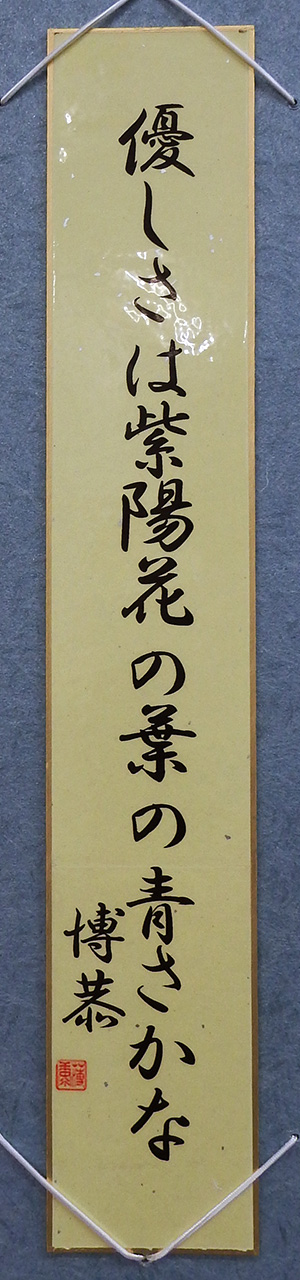 優しさは紫陽花の葉の青さかな
博恭